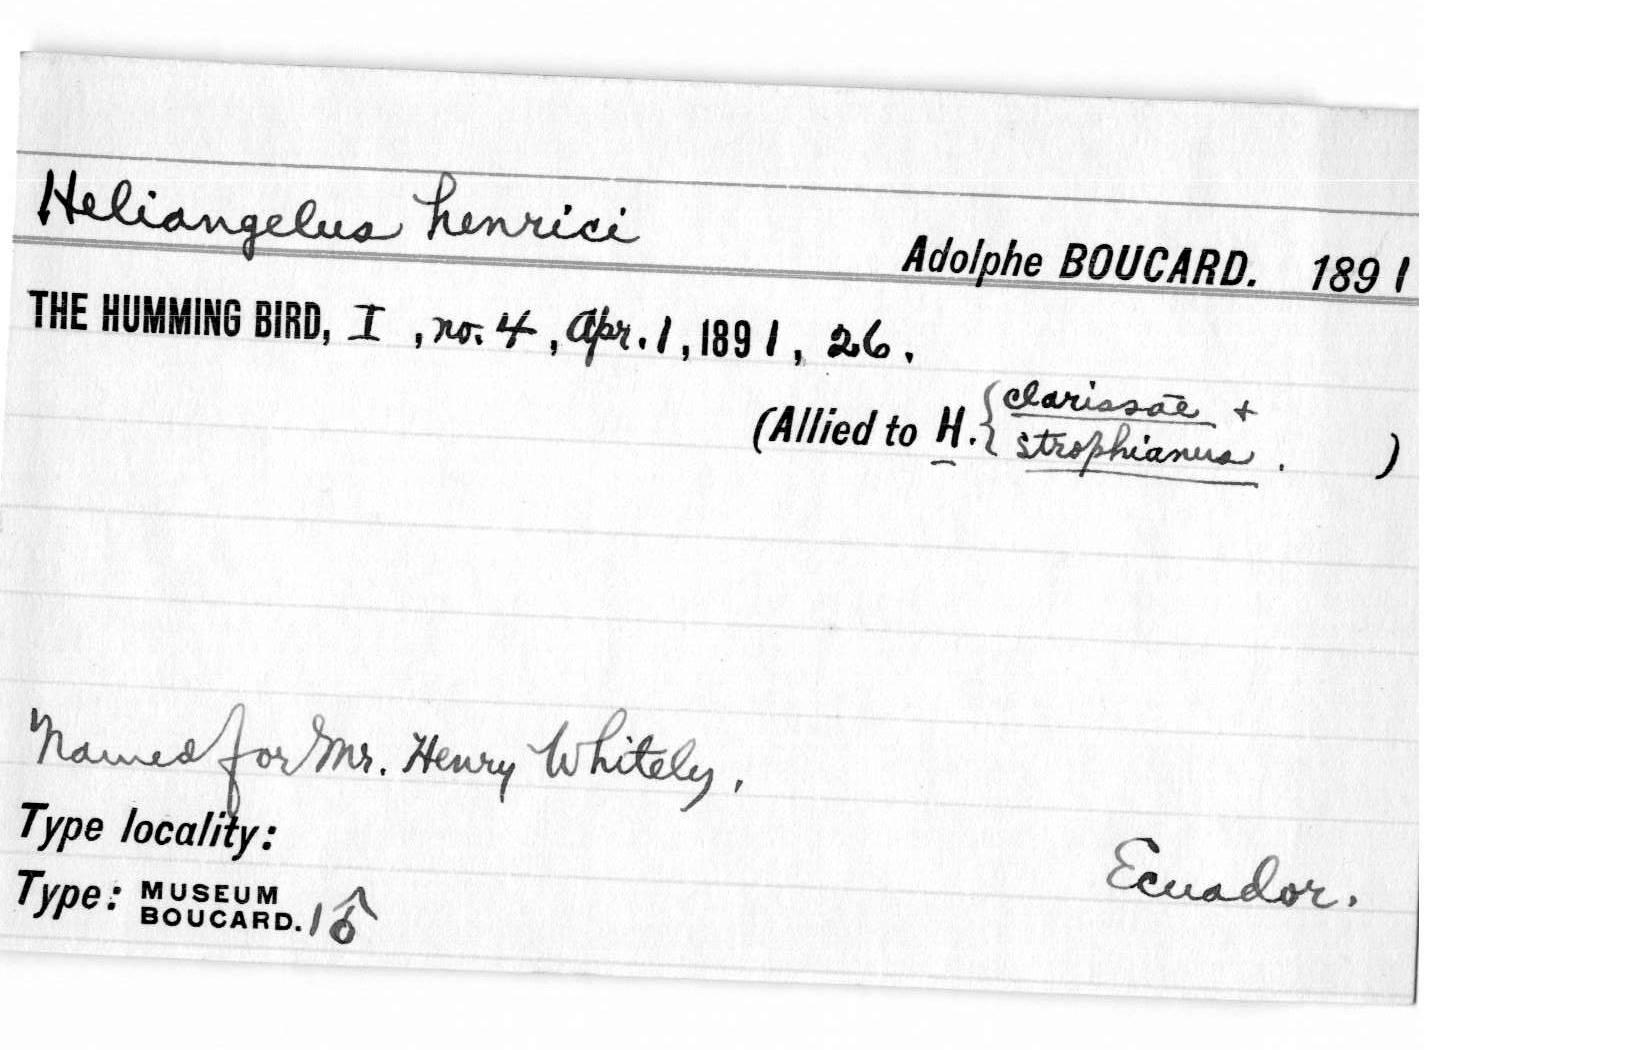 Heliangelus henrici
Adolphe BOUCARD. 1891
THE HUMMING BIRD, I, no. 4, Apr. 1, 1891, 26.
(Allied to H. { clarissae +
strophianus. )
Named for Mr. Henry Whitely.
Type locality:
Ecuador.
Type: MUSEUM
BOUCARD. 1 ♂